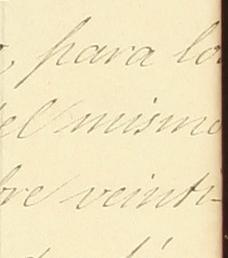 , para lo
el mismo
bre veinti-